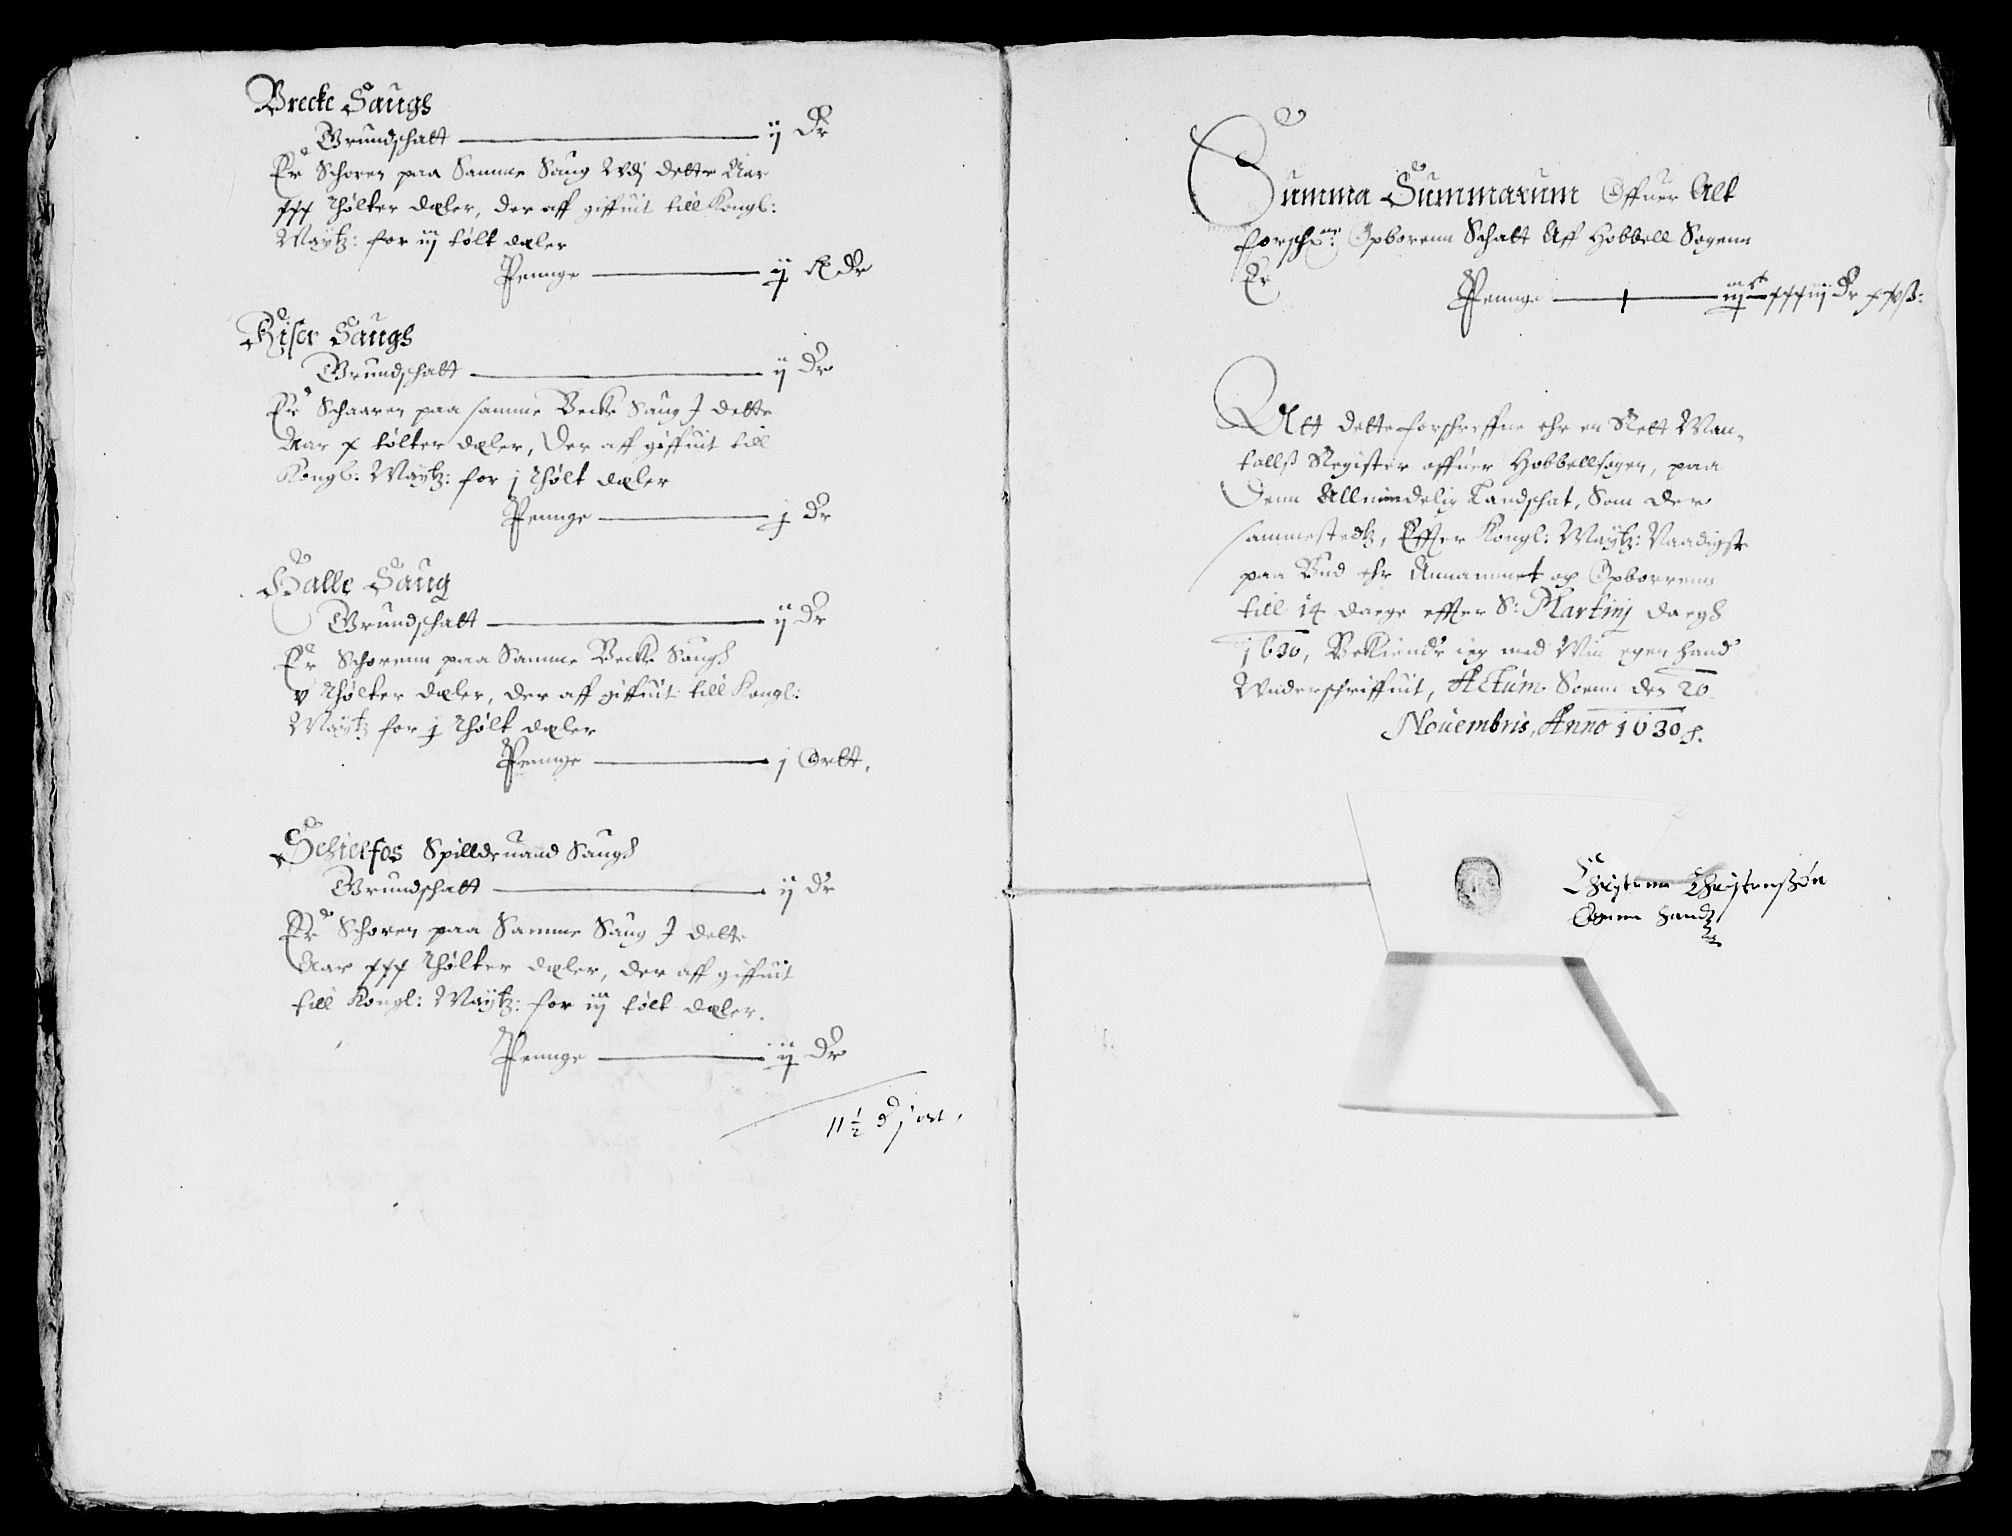 Brecke Saugh
Grundschatt ij Dr
Er Schoren paa Samme Saug Vdj dette Aar
xxx thølter dæler, der aff giffuit till Kongl:
Maytz: for iij tølt dæler
Pennge ij Dr
Riser Saugh
Grundschatt ij Dr
Er Schaaren paa samme Becke Saug I dette
Aar x tølter dæler, Der aff giffuit till
Kongl: Maytz: for j thølt dæler
Pennge j Dr
Halle Saug
Grundschatt ij Dr
Er Schorenn paa Samme Becke Saugh
v thølter dæler, der aff giffuit till Kongl:
Maytz for j thølt dæler
Pennge j Ortt,
Schielfos Spilldeuand Saugh
Grundschatt ij Dr
Er Schoren paa Samme Saug I dette
Aar xxx thølter dæler, der aff giffuit
till Kongl: Maytz: for iij tølt dæler.
Pennge ij Dr
11 1/2 D j ort,
Summa Summarum Offuer Alt
forschr: Opborenn Schatt Aff Hobbell Sogenn
Er
Pennge
Att dette forschreffne ehr en Rett Man-
talls Register offuer Hobbellsogen, paa
Denn Allmindelig Landschat, Som der
sammestedtz, Effter Kongl: Maytz: Naadigste
paa Bud ehr Annammet og Opborrenn
till 14 daege effter S: Martinj daegh
1630, Bekiender ieg med Min egen hand
Vnderschriffuit, Actum Soenn den 20
Nouembris, Anno 1630
Christenn Christenssøn
Egenn handtz